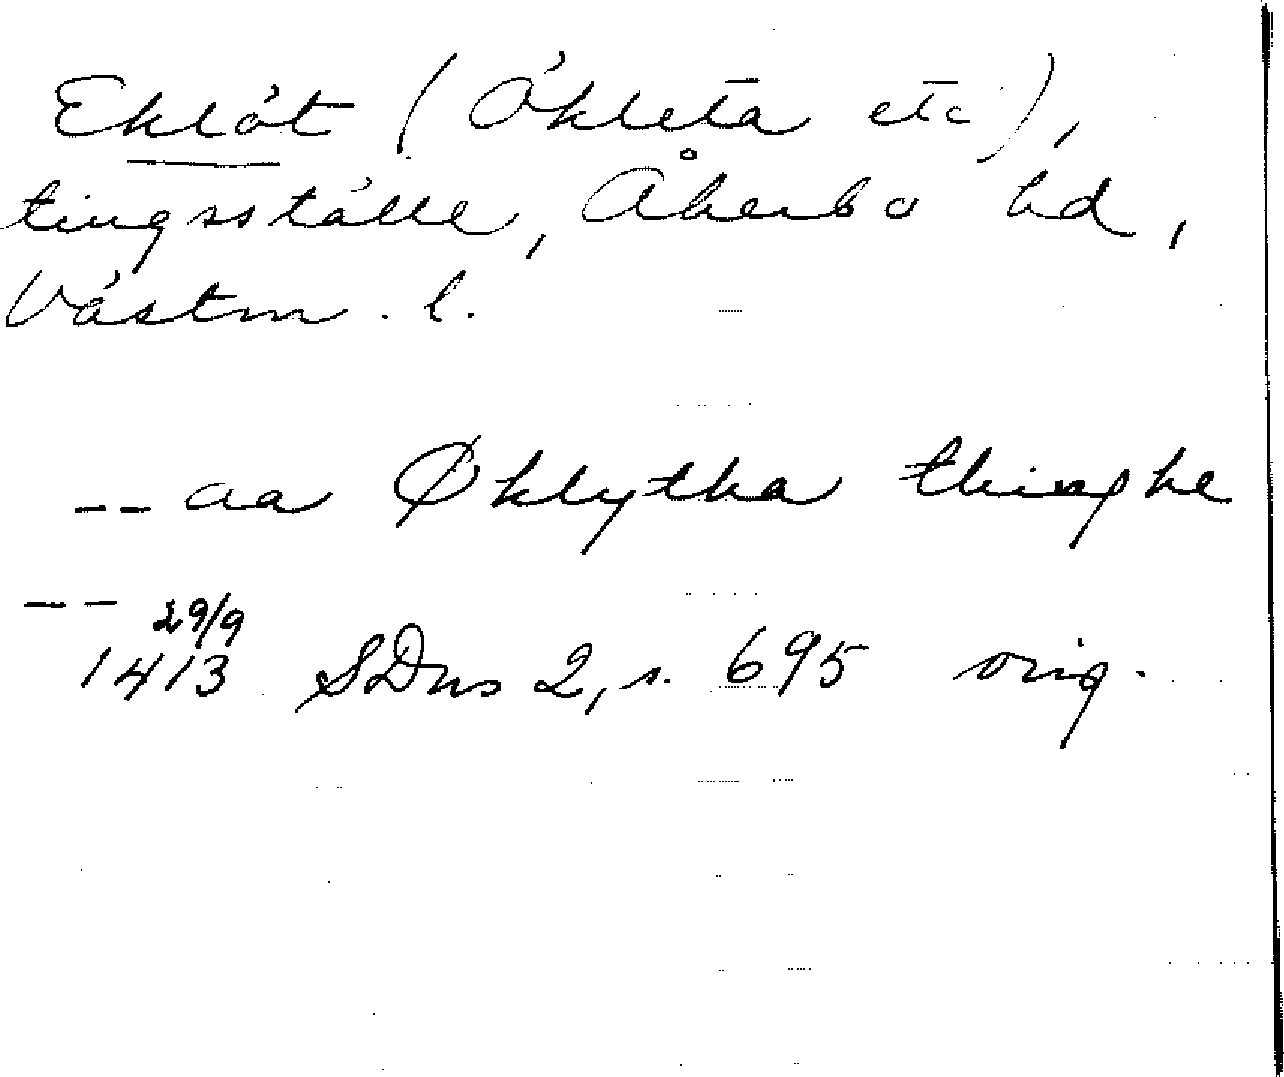 Eklöt (Ökleta etc),
tingsställe, Åkerbo hd,
Västm. l.
-- aa Øklytha thinghe
-- 29/9
1413 SDns 2, s. 695 orig.